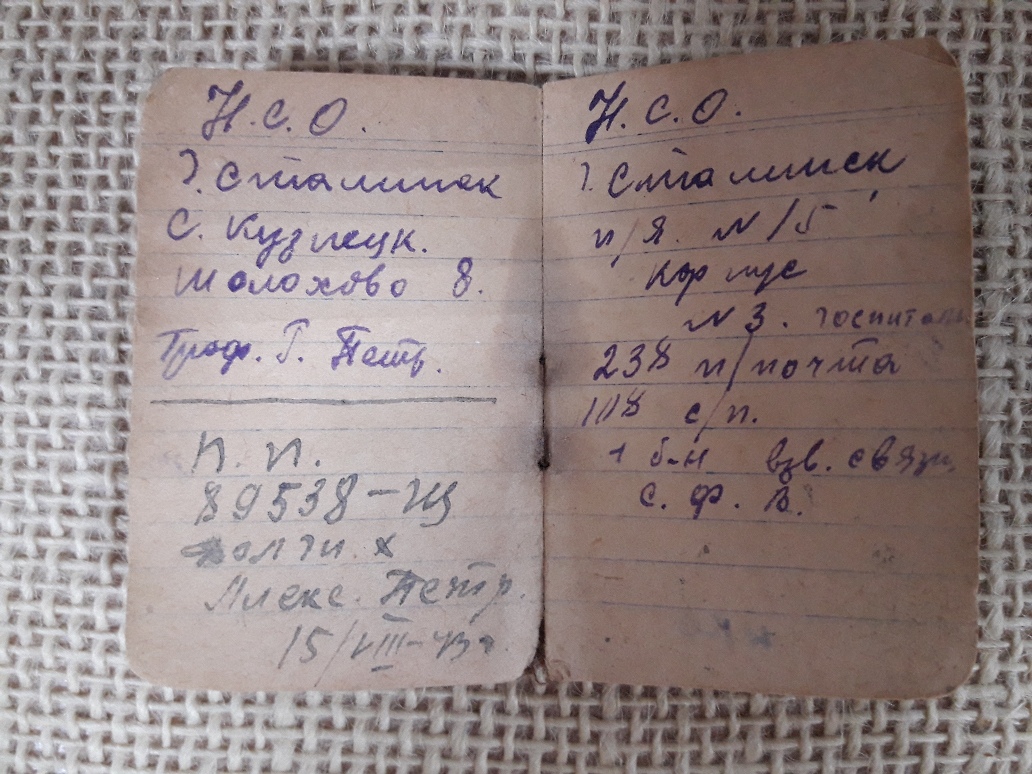 Н.С.О.
г. Сталинск
С. Кузнецк.
Шолохово 8.
Троф. Г. Петр.
П. П.
89538-Щ
Алекс. Петр.
15/VIII-43 г.
Н. С. О.
г. Сталинск
п/Я. N 15
Корпус
N 3. госпиталь
238 п/почта
1118 с/п.
1 б-н взв. связи,
С. Ф. В.